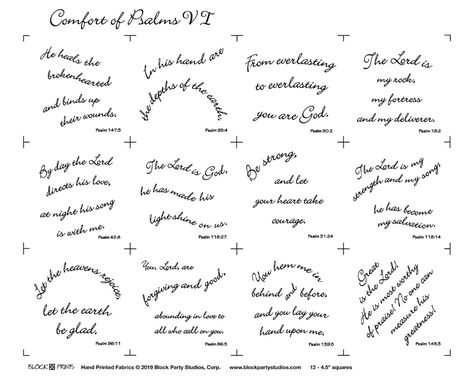 Comfort of Psalms VI
He heals the
brokenhearted
and binds up
their wounds.
Psalm 147:3
In his hand are
the depths of the earth.
Psalm 95:4
From everlasting
to everlasting
you are God.
Psalm 90:2
The Lord is
my rock,
my fortress
and my deliverer.
Psalm 18:2
By day the Lord
directs his love,
at night his song
is with me.
Psalm 42:8
The Lord is God,
he has made his
light shine on us.
Psalm 118:27
Be strong,
and let
your heart take
courage.
Psalm 31:24
The Lord is my
strength and my song,
he has become
my salvation.
Psalm 118:14
Let the heavens rejoice,
let the earth
be glad,
Psalm 96:11
You, Lord, are
forgiving and good,
abounding in love to
all who call on you.
Psalm 86:5
You hem me in
behind and before,
and you lay your
hand upon me.
Psalm 139:5
Great
is the Lord!
He is most worthy
of praise! No one can
measure his
greatness!
Psalm 145:3
BLOCK PRINTS Hand Printed Fabrics © 2019 Block Party Studios, Corp. www.blockpartystudios.com 12 - 4.5" squares